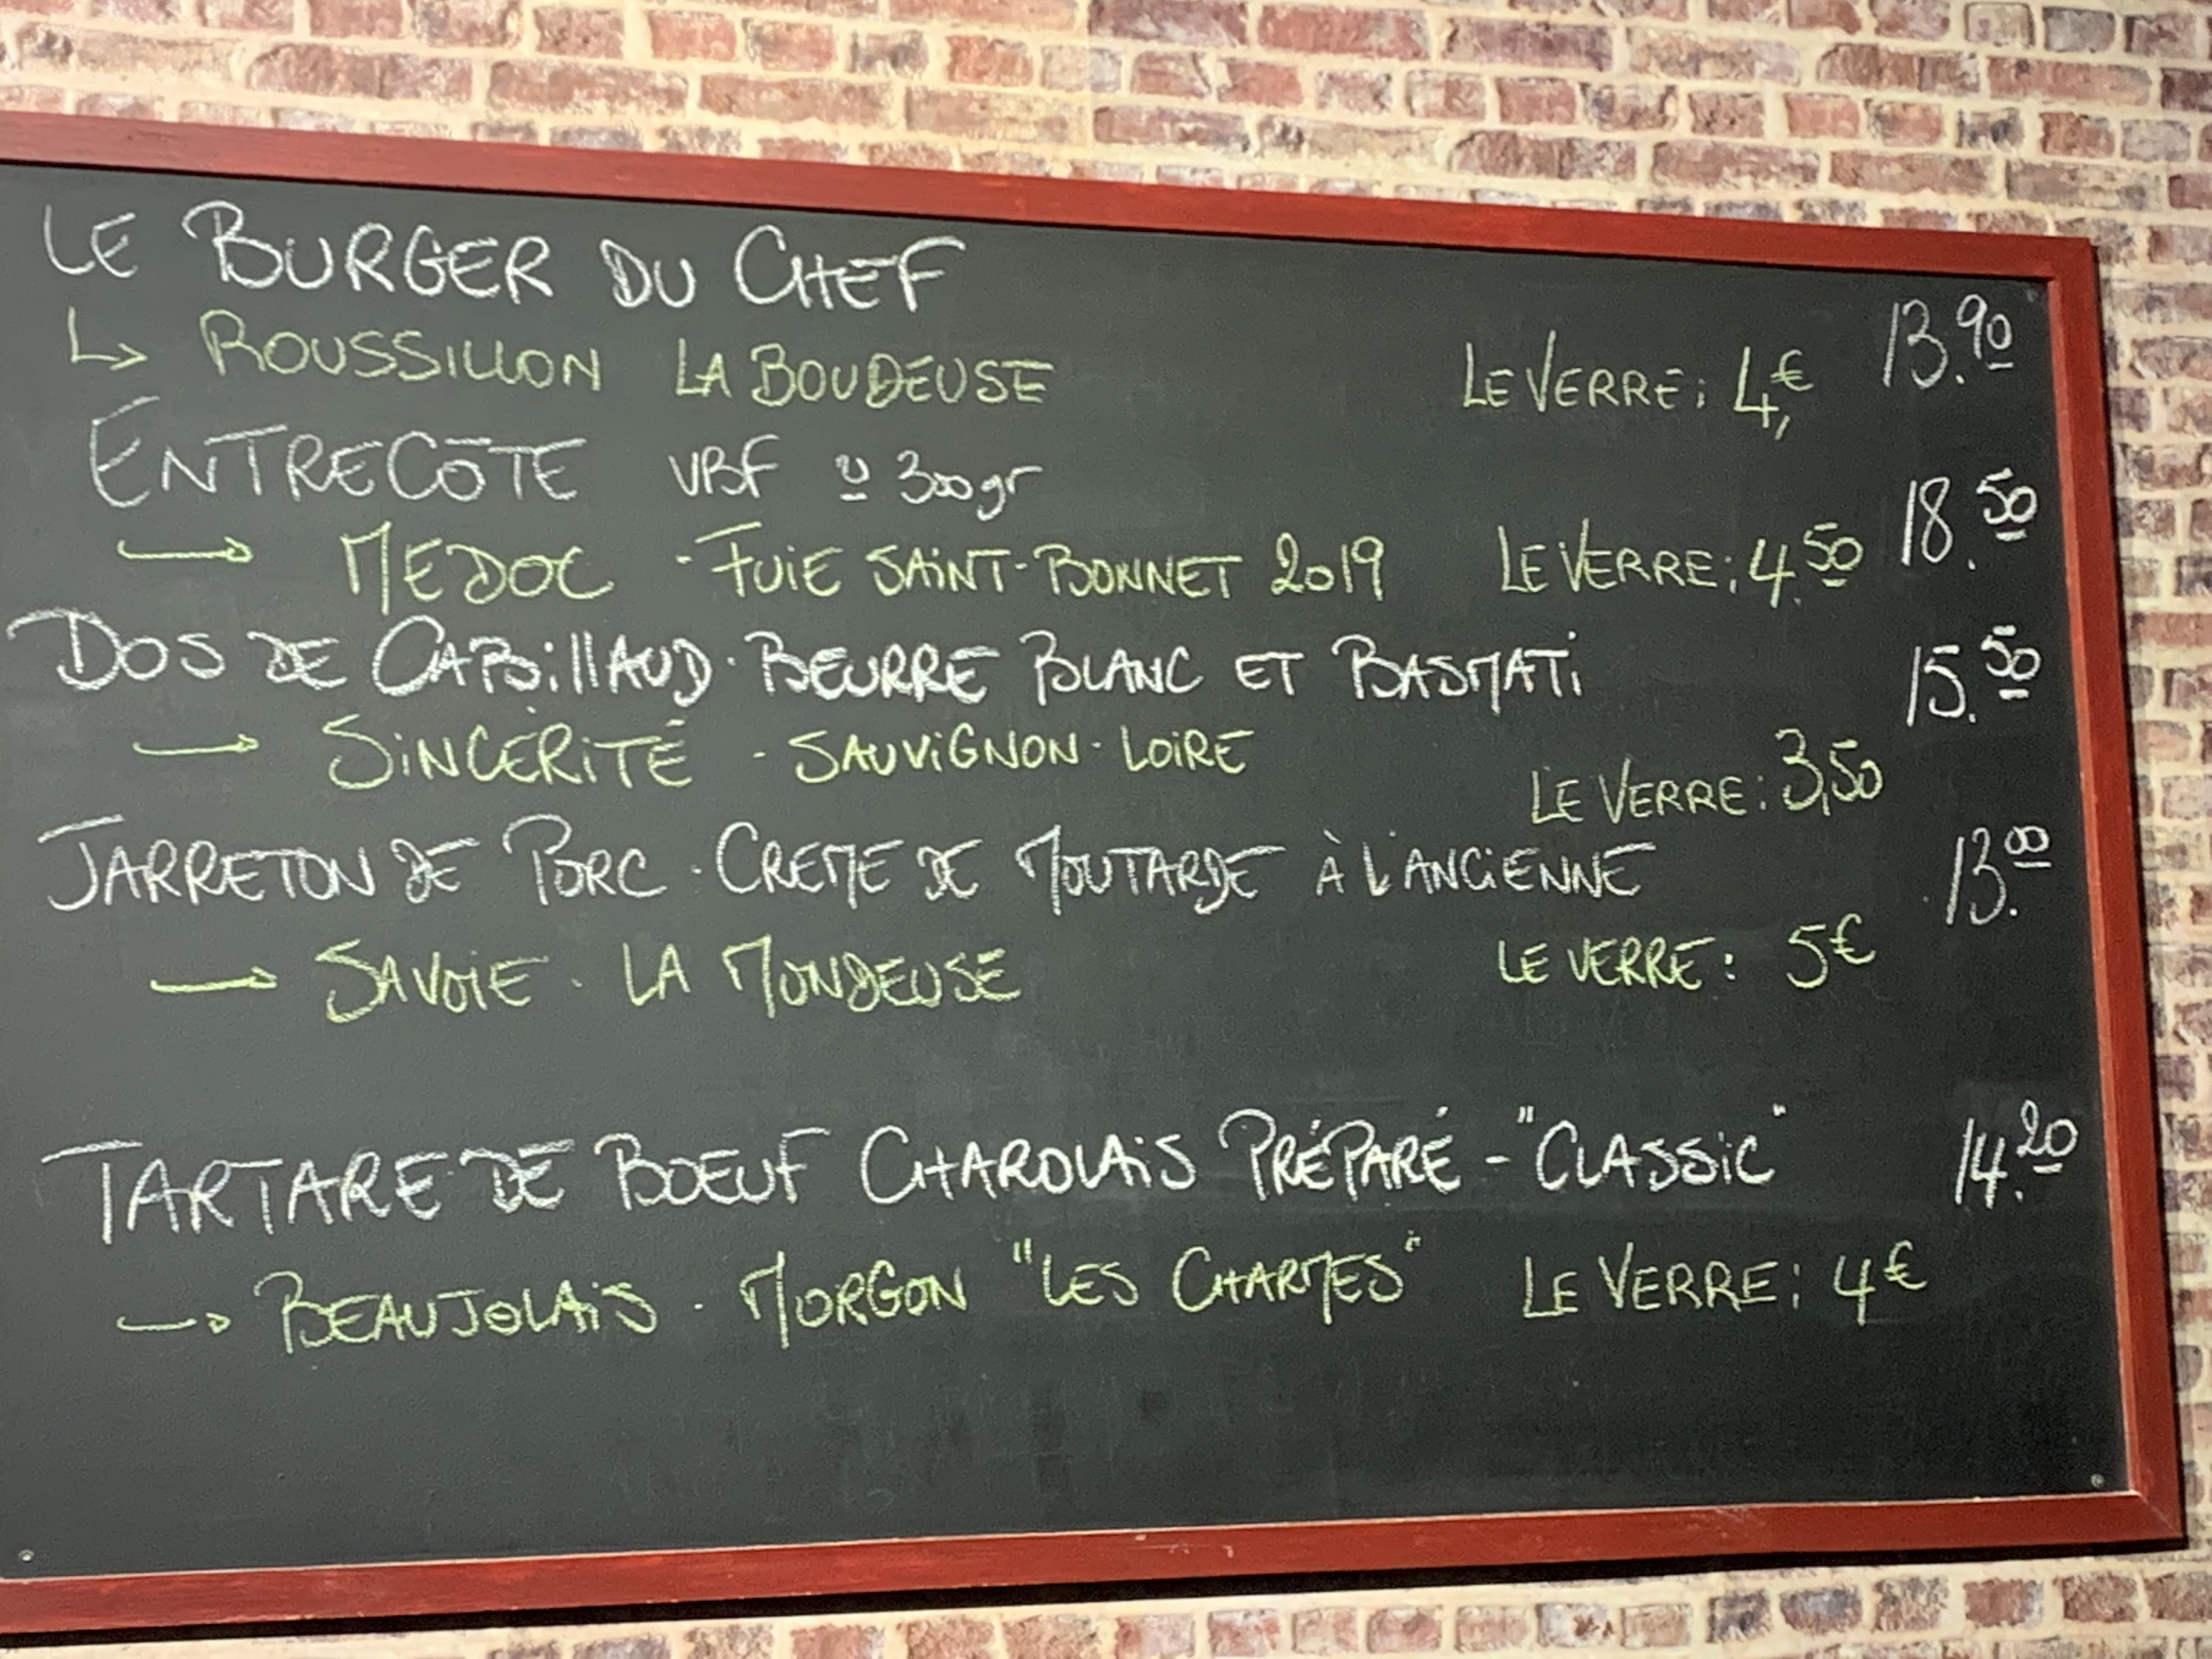 LE BURGER DU CHEF 13.90
↳ ROUSSILLON LA BOUDEUSE LE VERRE : 4,€
ENTRECÔTE VBF ± 300gr 18.50
→ MEDOC - FUIE SAINT-BONNET 2019 LE VERRE : 4.50
DOS DE CABILLAUD · BEURRE BLANC ET BASMATI 15.50
→ SINCÉRITÉ - SAUVIGNON · LOIRE LE VERRE : 3,50
JARRETON DE PORC · CREME DE MOUTARDE À L'ANCIENNE 13.00
→ SAVOIE · LA MONDEUSE LE VERRE : 5€
TARTARE DE BOEUF CHAROLAIS PRÉPARÉ - "CLASSIC" 14.20
→ BEAUJOLAIS · MORGON "LES CHARMES" LE VERRE : 4€